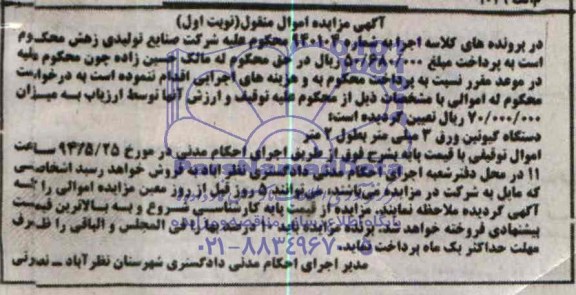 آگهی مزایده اموال منقول(نوبت اول)
در پرونده های کلاسه اجرا به شماره ۹۴۰۱۰۴ محکوم علیه شرکت صنایع تولیدی زهش محکوم
است به پرداخت مبلغ ۵۰۷۶۸۰۰۰۰ ریال در حق محکوم له مالک حسین زاده چون محکوم علیه
در موعد مقرر نسبت به پرداخت محکوم به و هزینه های اجرایی اقدام ننموده است به درخواست
محکوم له اموالی با مشخصات ذیل از محکوم علیه توقیف و ارزش آنها توسط ارزیاب به میزان
۷۰/۰۰۰/۰۰۰ ریال تعیین گردیده است:
دستگاه گیوتین ورق ۳ میلی متر بطول ۲ متر
اموال توقیفی با قیمت پایه بشرح فوق از طریق اجرای احکام مدنی در مورخ ۹۴/۵/۲۵ ساعت
۱۱ در محل دفتر شعبه اجرای احکام مدنی دادگستری نظرآباد به فروش خواهد رسید اشخاصی
که مایل به شرکت در مزایده می‌باشند، می‌توانند ۵ روز قبل از روز معین مزایده اموالی را که
آگهی گردیده ملاحظه نمایند، مزایده از قیمت پایه کارشناسی شروع و به بالاترین قیمت
پیشنهادی فروخته خواهد شد برنده مزایده باید ۱۰ درصد بهاء فی المجلس و الباقی را ظرف
مهلت حداکثر یک ماه پرداخت نماید.
مدیر اجرای احکام مدنی دادگستری شهرستان نظرآباد ـ نصرتی
۰۲۱-۸۸۳۴۹۶۷۰-۵